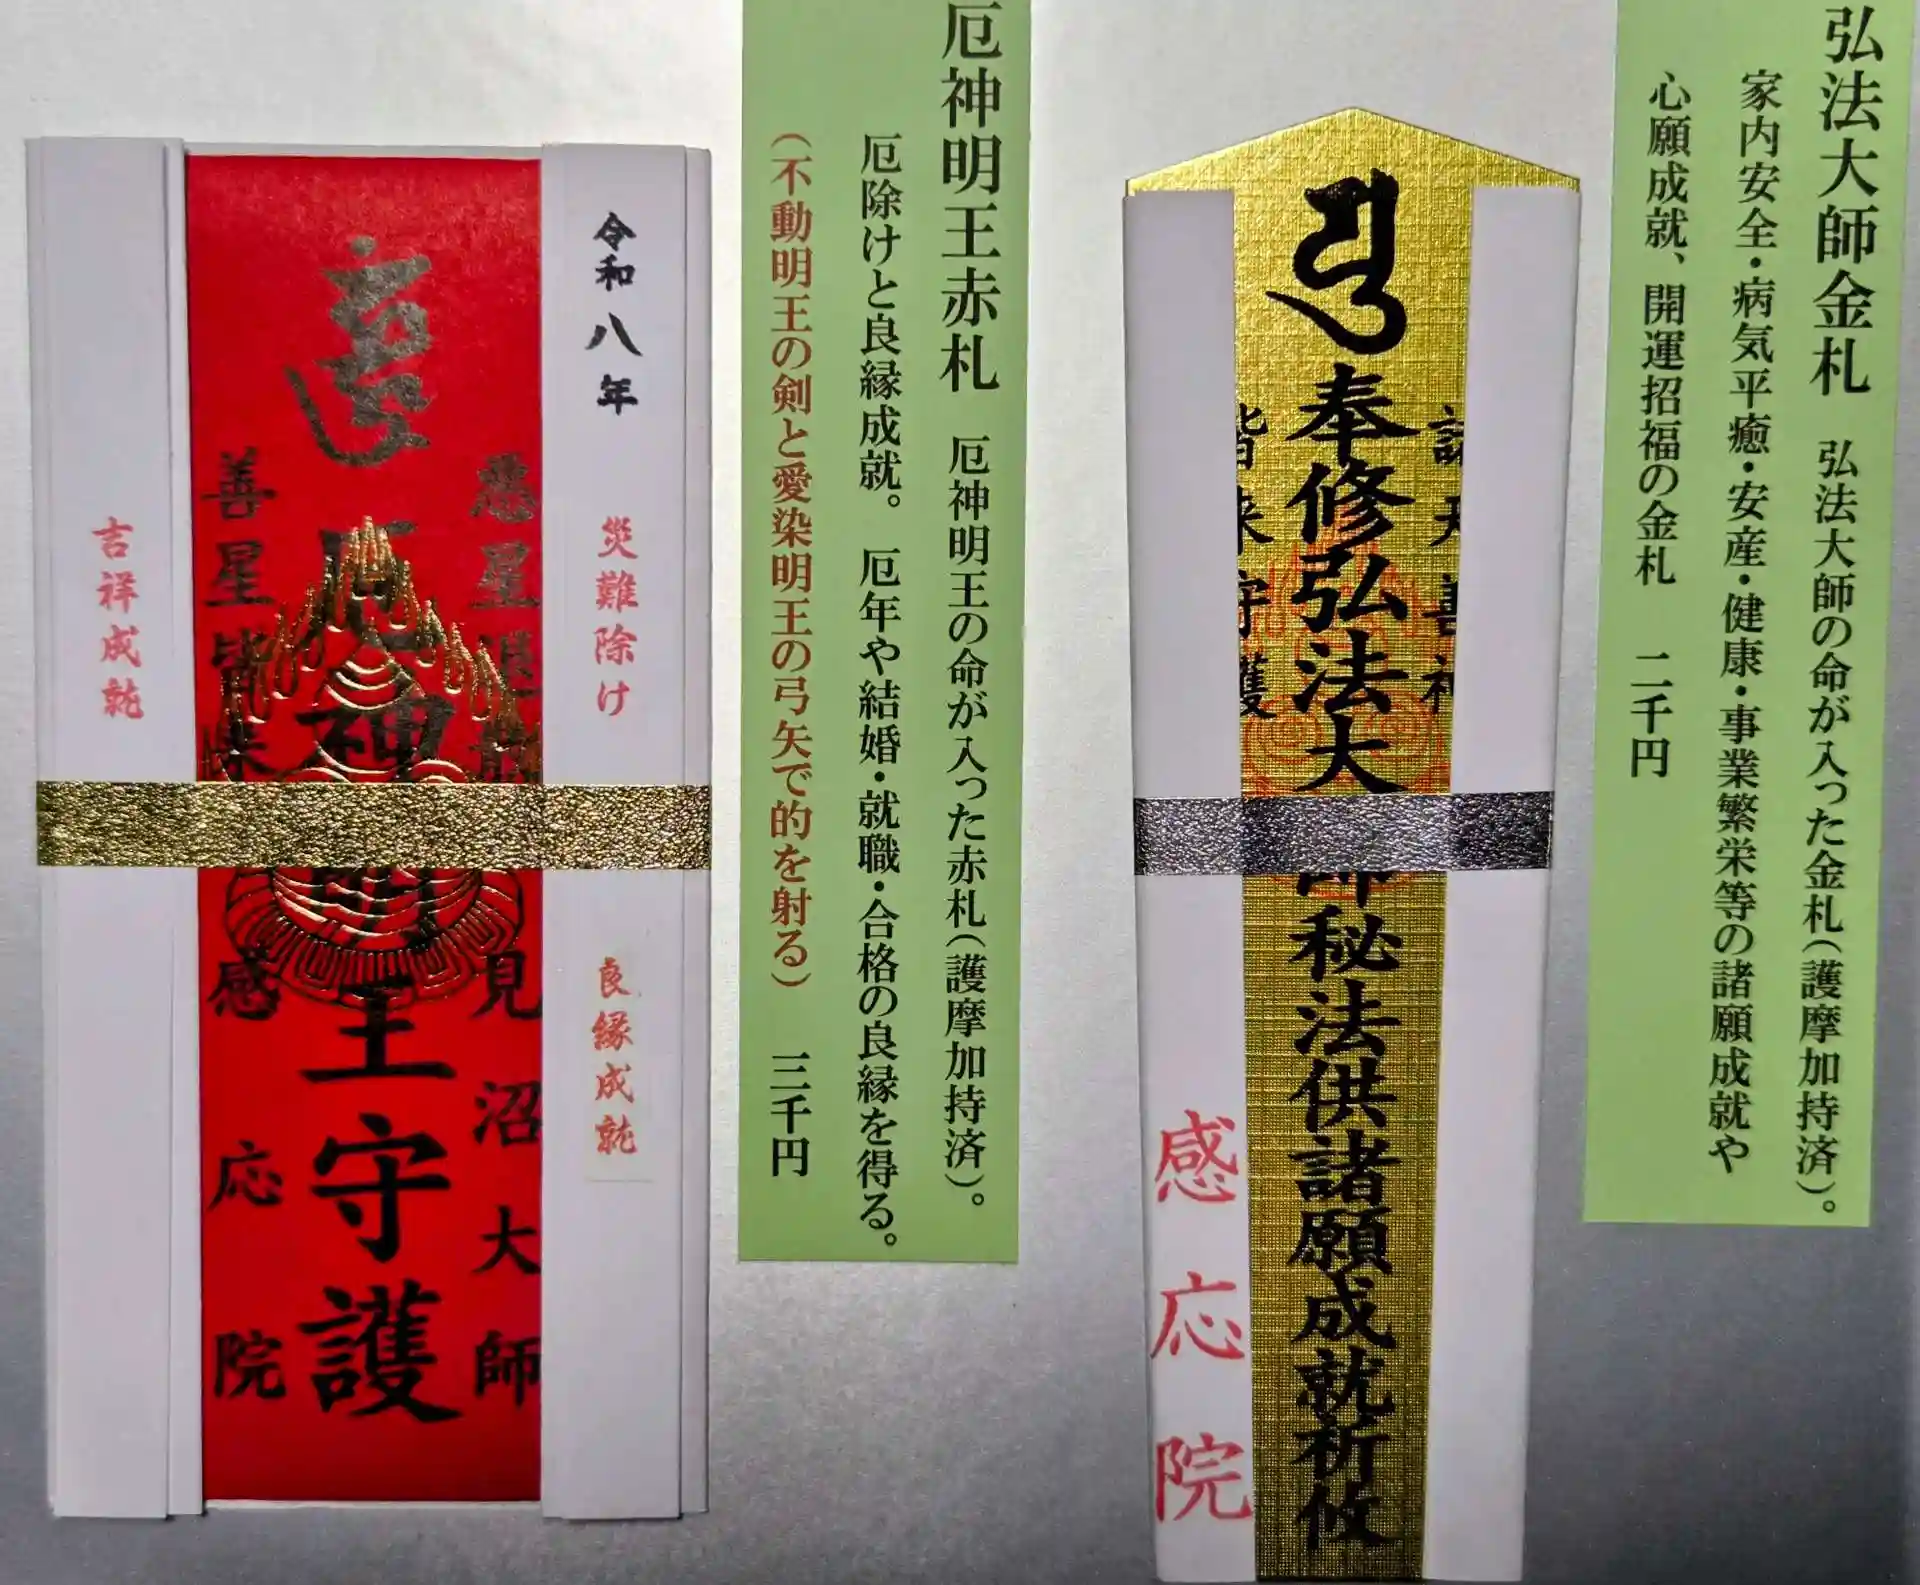 弘法大師金札 弘法大師の命が入った金札(護摩加持済)。
家内安全・病気平癒・安産・健康・事業繁栄等の諸願成就や
心願成就、開運招福の金札 二千円
奉修弘法大師秘法供諸願成就祈攸
皆来守護
感応院
厄神明王赤札 厄神明王の命が入った赤札(護摩加持済)。
厄除けと良縁成就。 厄年や結婚・就職・合格の良縁を得る。
(不動明王の剣と愛染明王の弓矢で的を射る) 三千円
令和八年
災難除け
良縁成就
見沼大師
神明王守護
善星皆来
感応院
吉祥成就